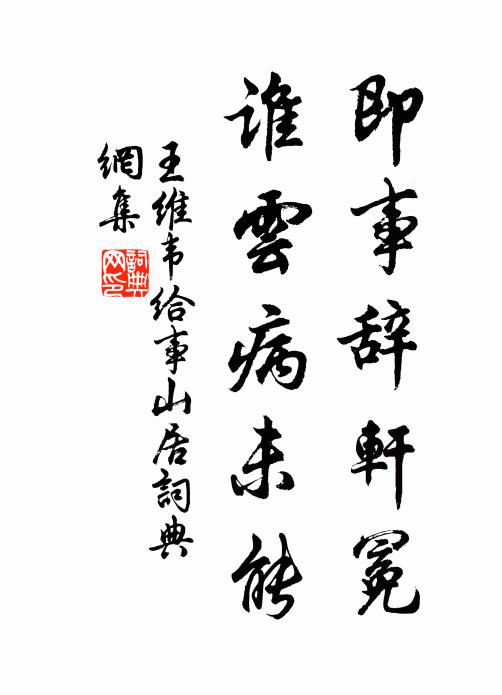 即事辞軒冕
谁雲病未能
王维韦给事山居詞典
網集
詞典
网印